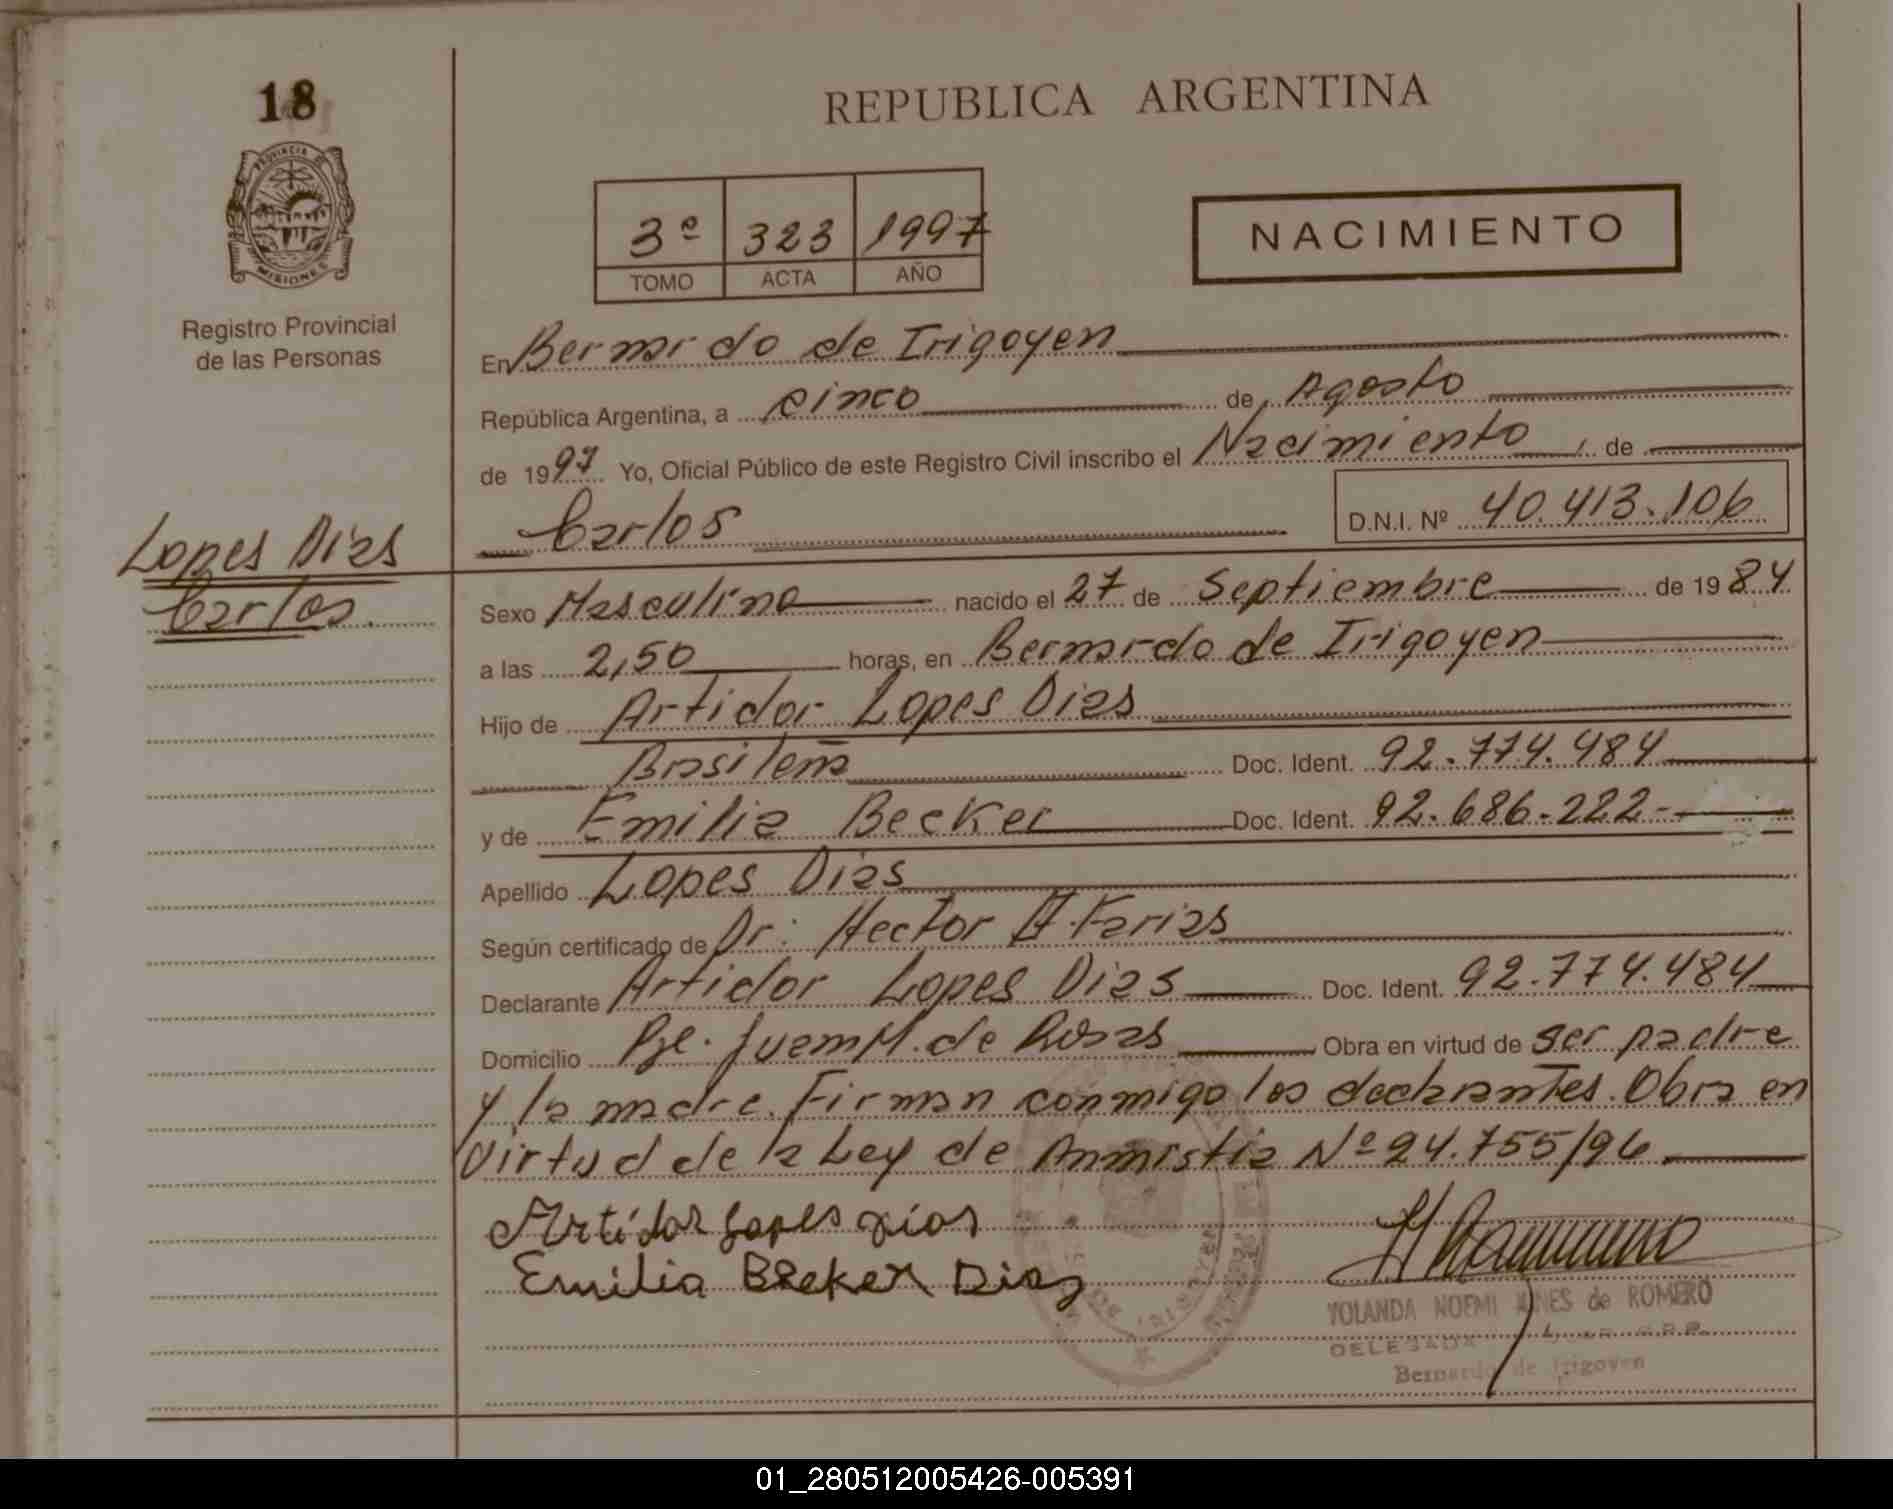 18
REPUBLICA ARGENTINA
PROVINCIA DE
MISIONES
Registro Provincial
de las Personas
3º 323 1997
TOMO ACTA AÑO
NACIMIENTO
En Bernardo de Irigoyen
República Argentina, a cinco de Agosto
de 1997 Yo, Oficial Público de este Registro Civil inscribo el Nacimiento, de
Carlos D.N.I. Nº 40.413.106
Lopes Dias
Carlos.
Sexo Masculino nacido el 27 de Septiembre de 1984
a las 2,50 horas, en Bernardo de Irigoyen
Hijo de Artidor Lopes Dias
Brasileña Doc. Ident. 92.774.484
y de Emilia Becker Doc. Ident. 92.686.222-
Apellido Lopes Dias
Según certificado de Dr: Hector A. Farias
Declarante Artidor Lopes Dias Doc. Ident. 92.774.484
Domicilio Pje. Juan M. de Rosas Obra en virtud de ser padre
y la madre. Firman conmigo los declarantes. Obra en
Virtud de la Ley de Anmistia Nº 24.755/96.
Artidor Lopes Dias
Emilia Beker Dias
YOLANDA NOEMI DE ROMERO
DELEGADA
Bernardo de Irigoyen
01_280512005426-005391